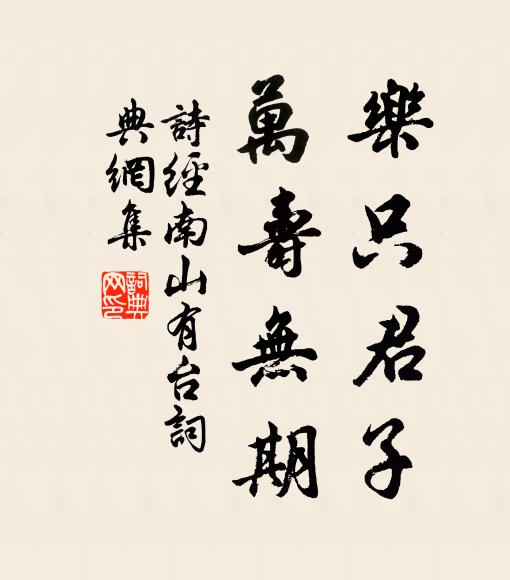 樂只君子
萬壽無期
詩經南山有台詞
典網集
詞典网印